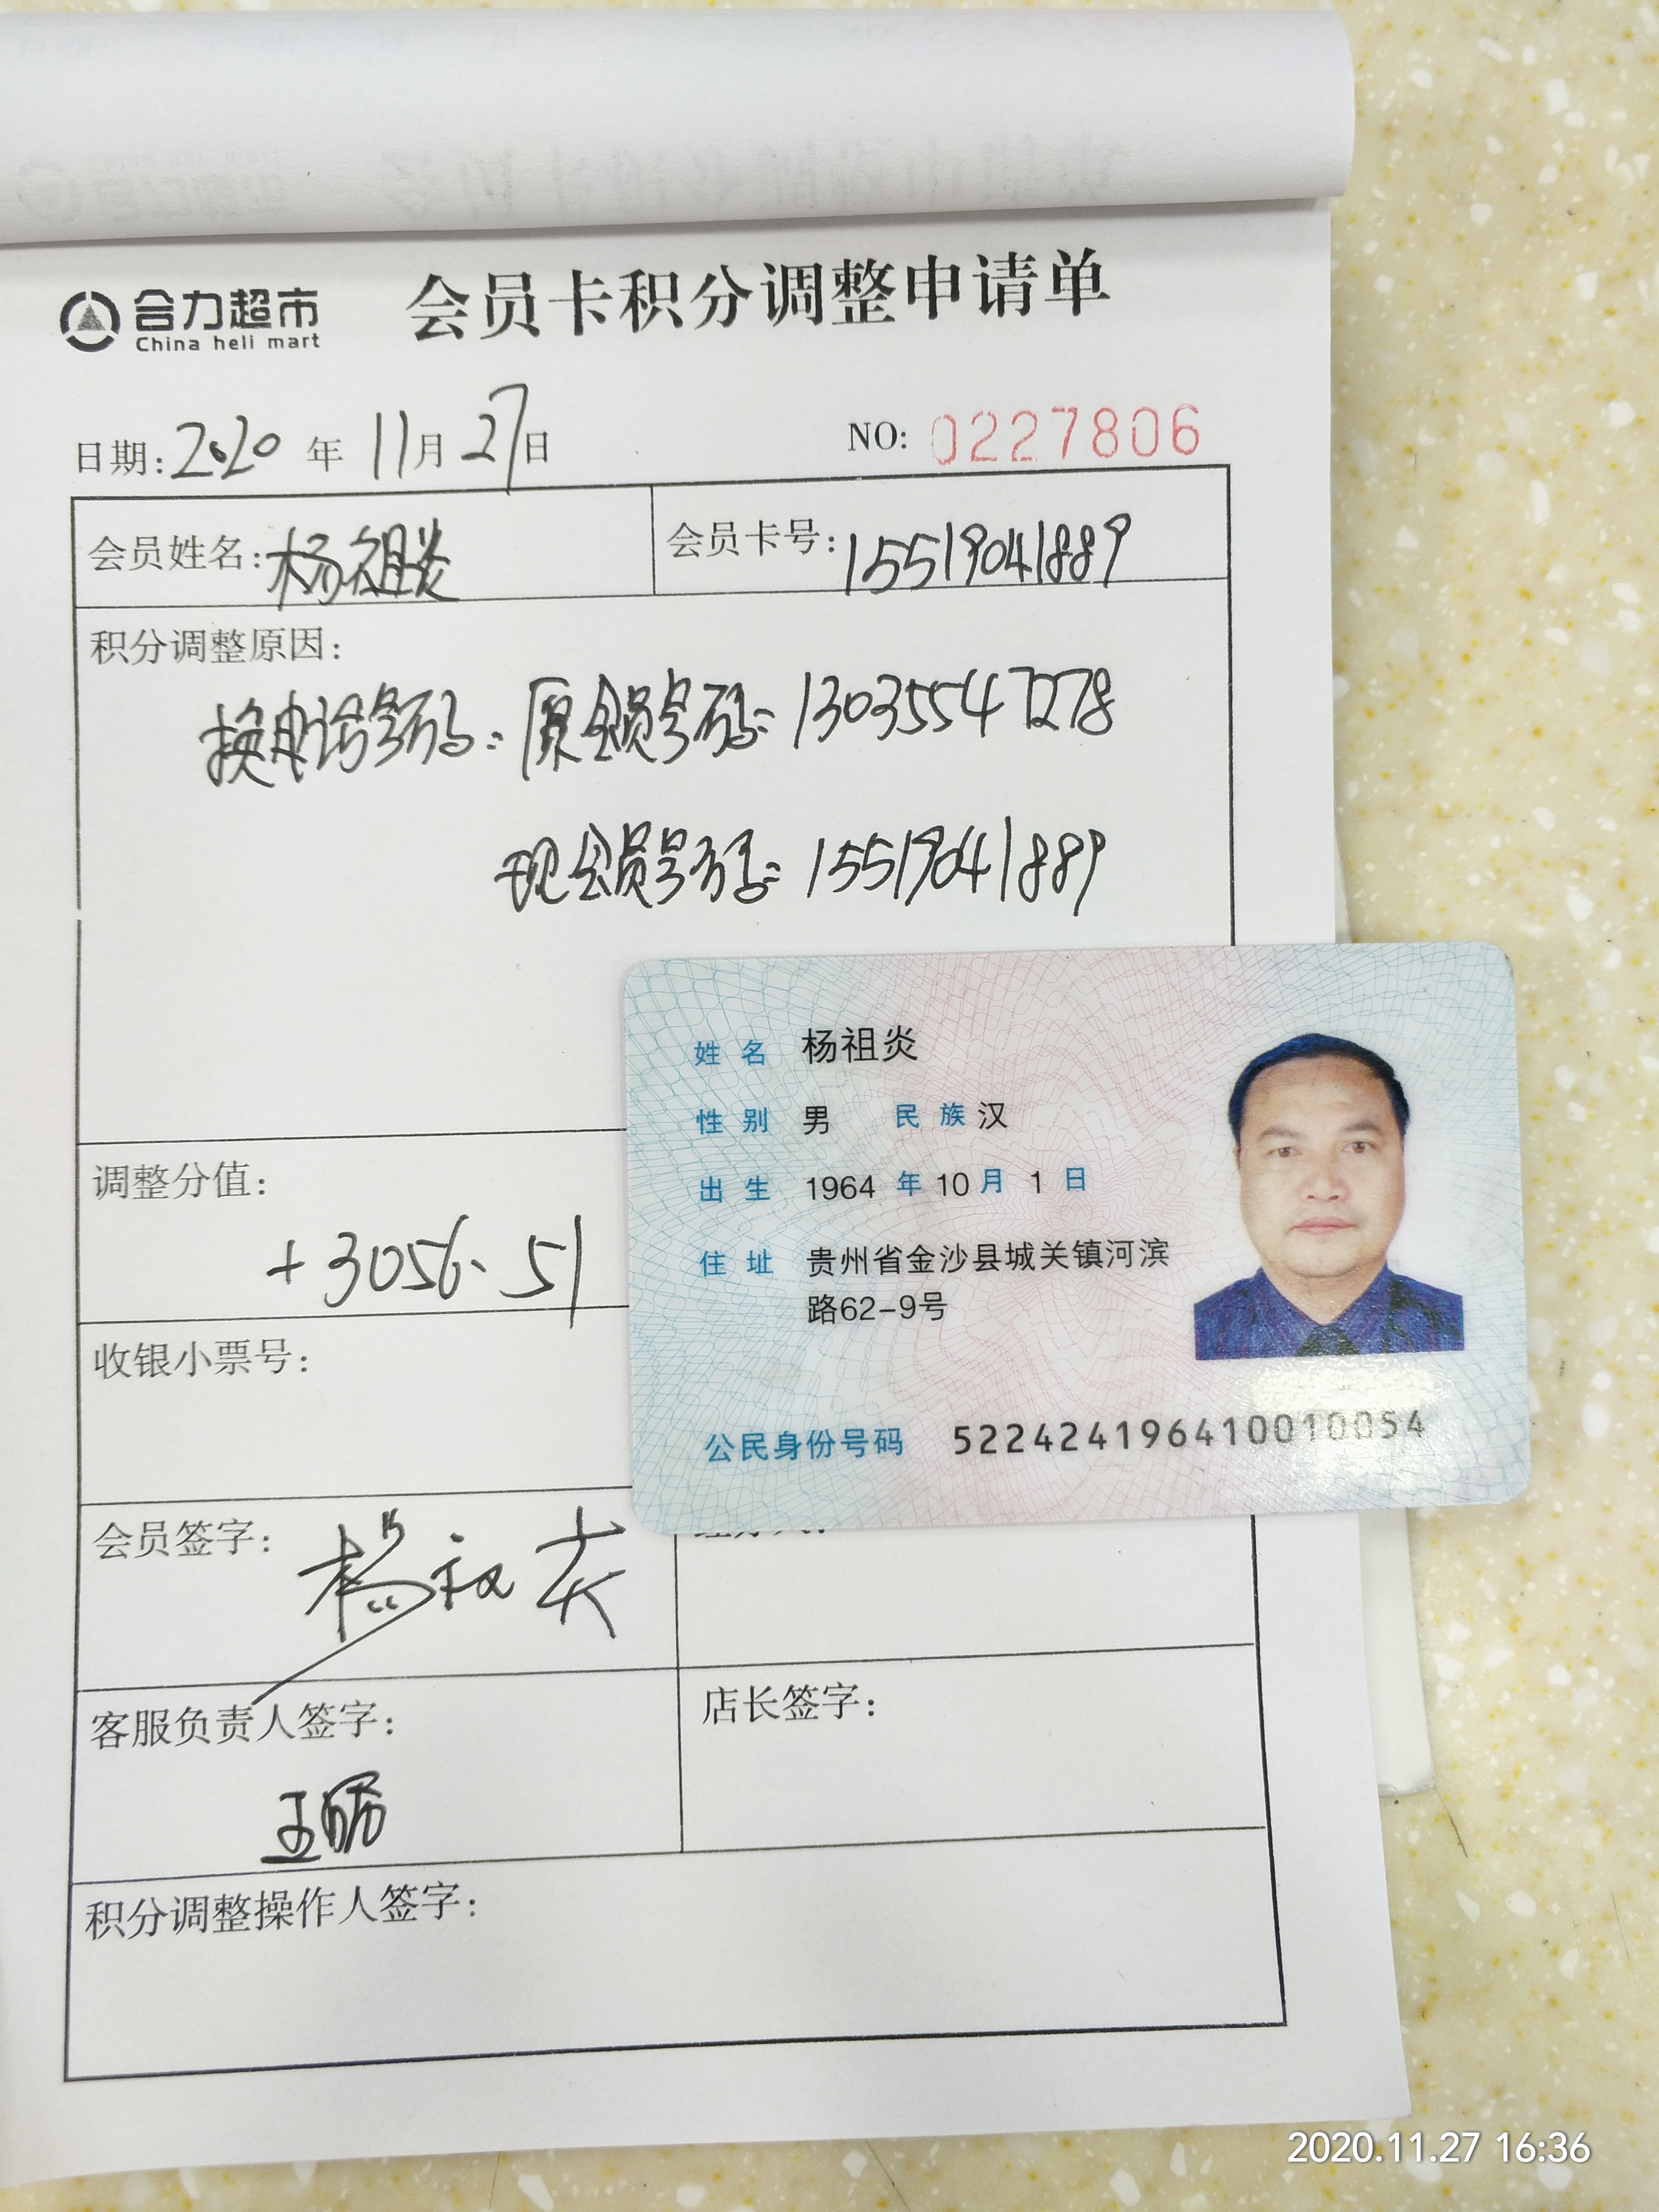 合力超市
China heli mart
会员卡积分调整申请单
日期: 2020 年 11月 27日
NO: 0227806
会员姓名: 杨祖炎
会员卡号: 15519041889
积分调整原因:
换电话号码: 原会员号码: 13035547278
现会员号码: 15519041889
调整分值:
+3056.51
收银小票号:
会员签字: 杨祖炎
客服负责人签字:
店长签字:
积分调整操作人签字:
姓名 杨祖炎
性别 男 民族 汉
出生 1964 年 10 月 1 日
住址 贵州省金沙县城关镇河滨
路62-9号
公民身份号码 522424196410010054
2020.11.27 16:36